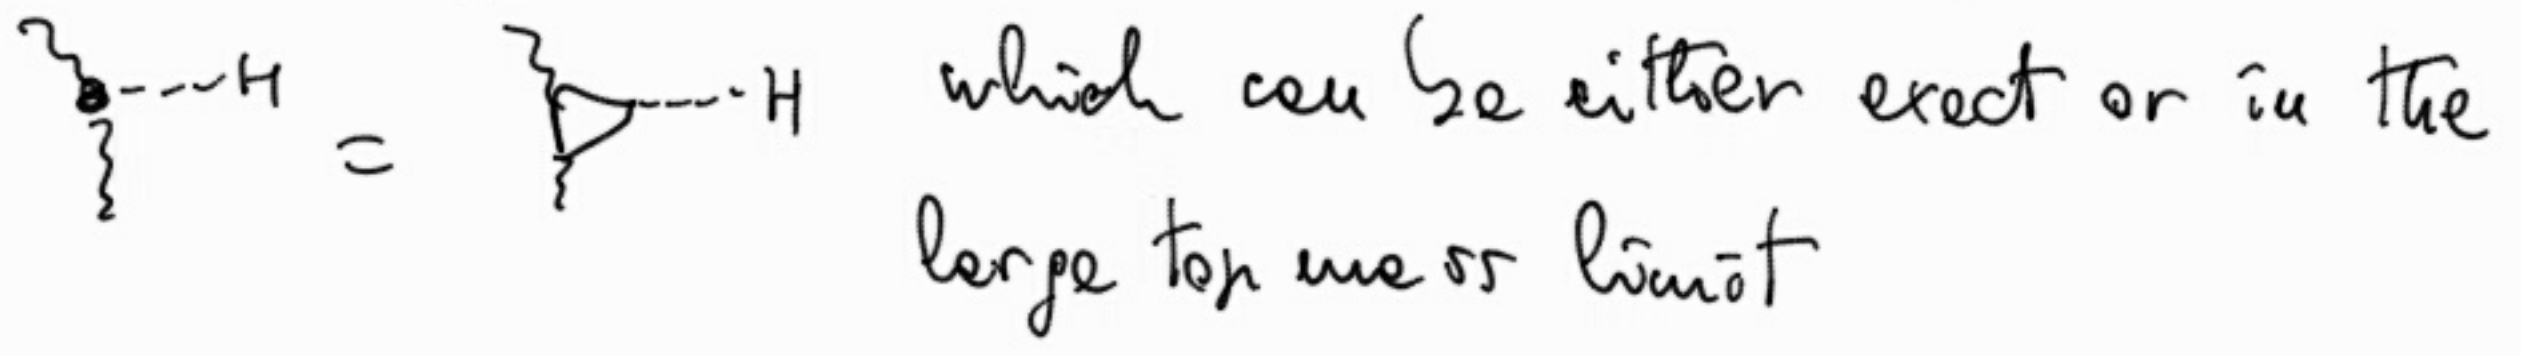 H = H which can be either exact or in the
large top mass limit